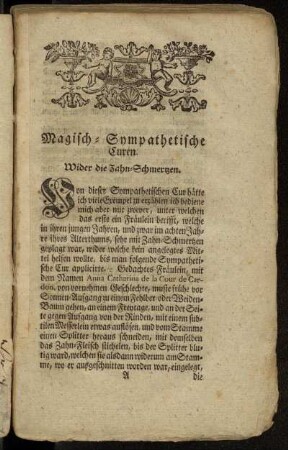 Magisch-Sympathetische
Curen.
Wider die Zahn-Schmertzen.
Von dieser Sympathetischen Cur hätte
ich viele Exempel zu erzählen: ich bediene
mich aber nur zweyer, unter welchen
das erste ein Fräulein betrifft, welche
in ihren jungen Jahren, und zwar im achten Jah-
re ihres Alterthums, sehr mit Zahn-Schmertzen
geplagt war, wider welche kein anderes Mit-
tel helfen wollte, bis man folgende Sympatheti-
sche Cur applicirte. Gedachtes Fräulein, mit
dem Namen Anna Catharina de la Cour de Car-
von vornehmen Geschlechte, muste frühe vor
Sonnen-Aufgang zu einem Fehlber oder Weiden-
Baum gehen, an einem Freytage, und an der Sei-
te gegen Aufgang von der Rinden, mit einem sub-
tilen Messerlein etwas auflösen, und vom Stamme
einen Splitter heraus schneiden, mit demselben
das Zahn-Fleisch sticheln, bis der Splitter blu-
tig ward, welchen sie alsdann widerum am Stam-
me, wo er aufgeschnitten worden war, eingelegt,
A die